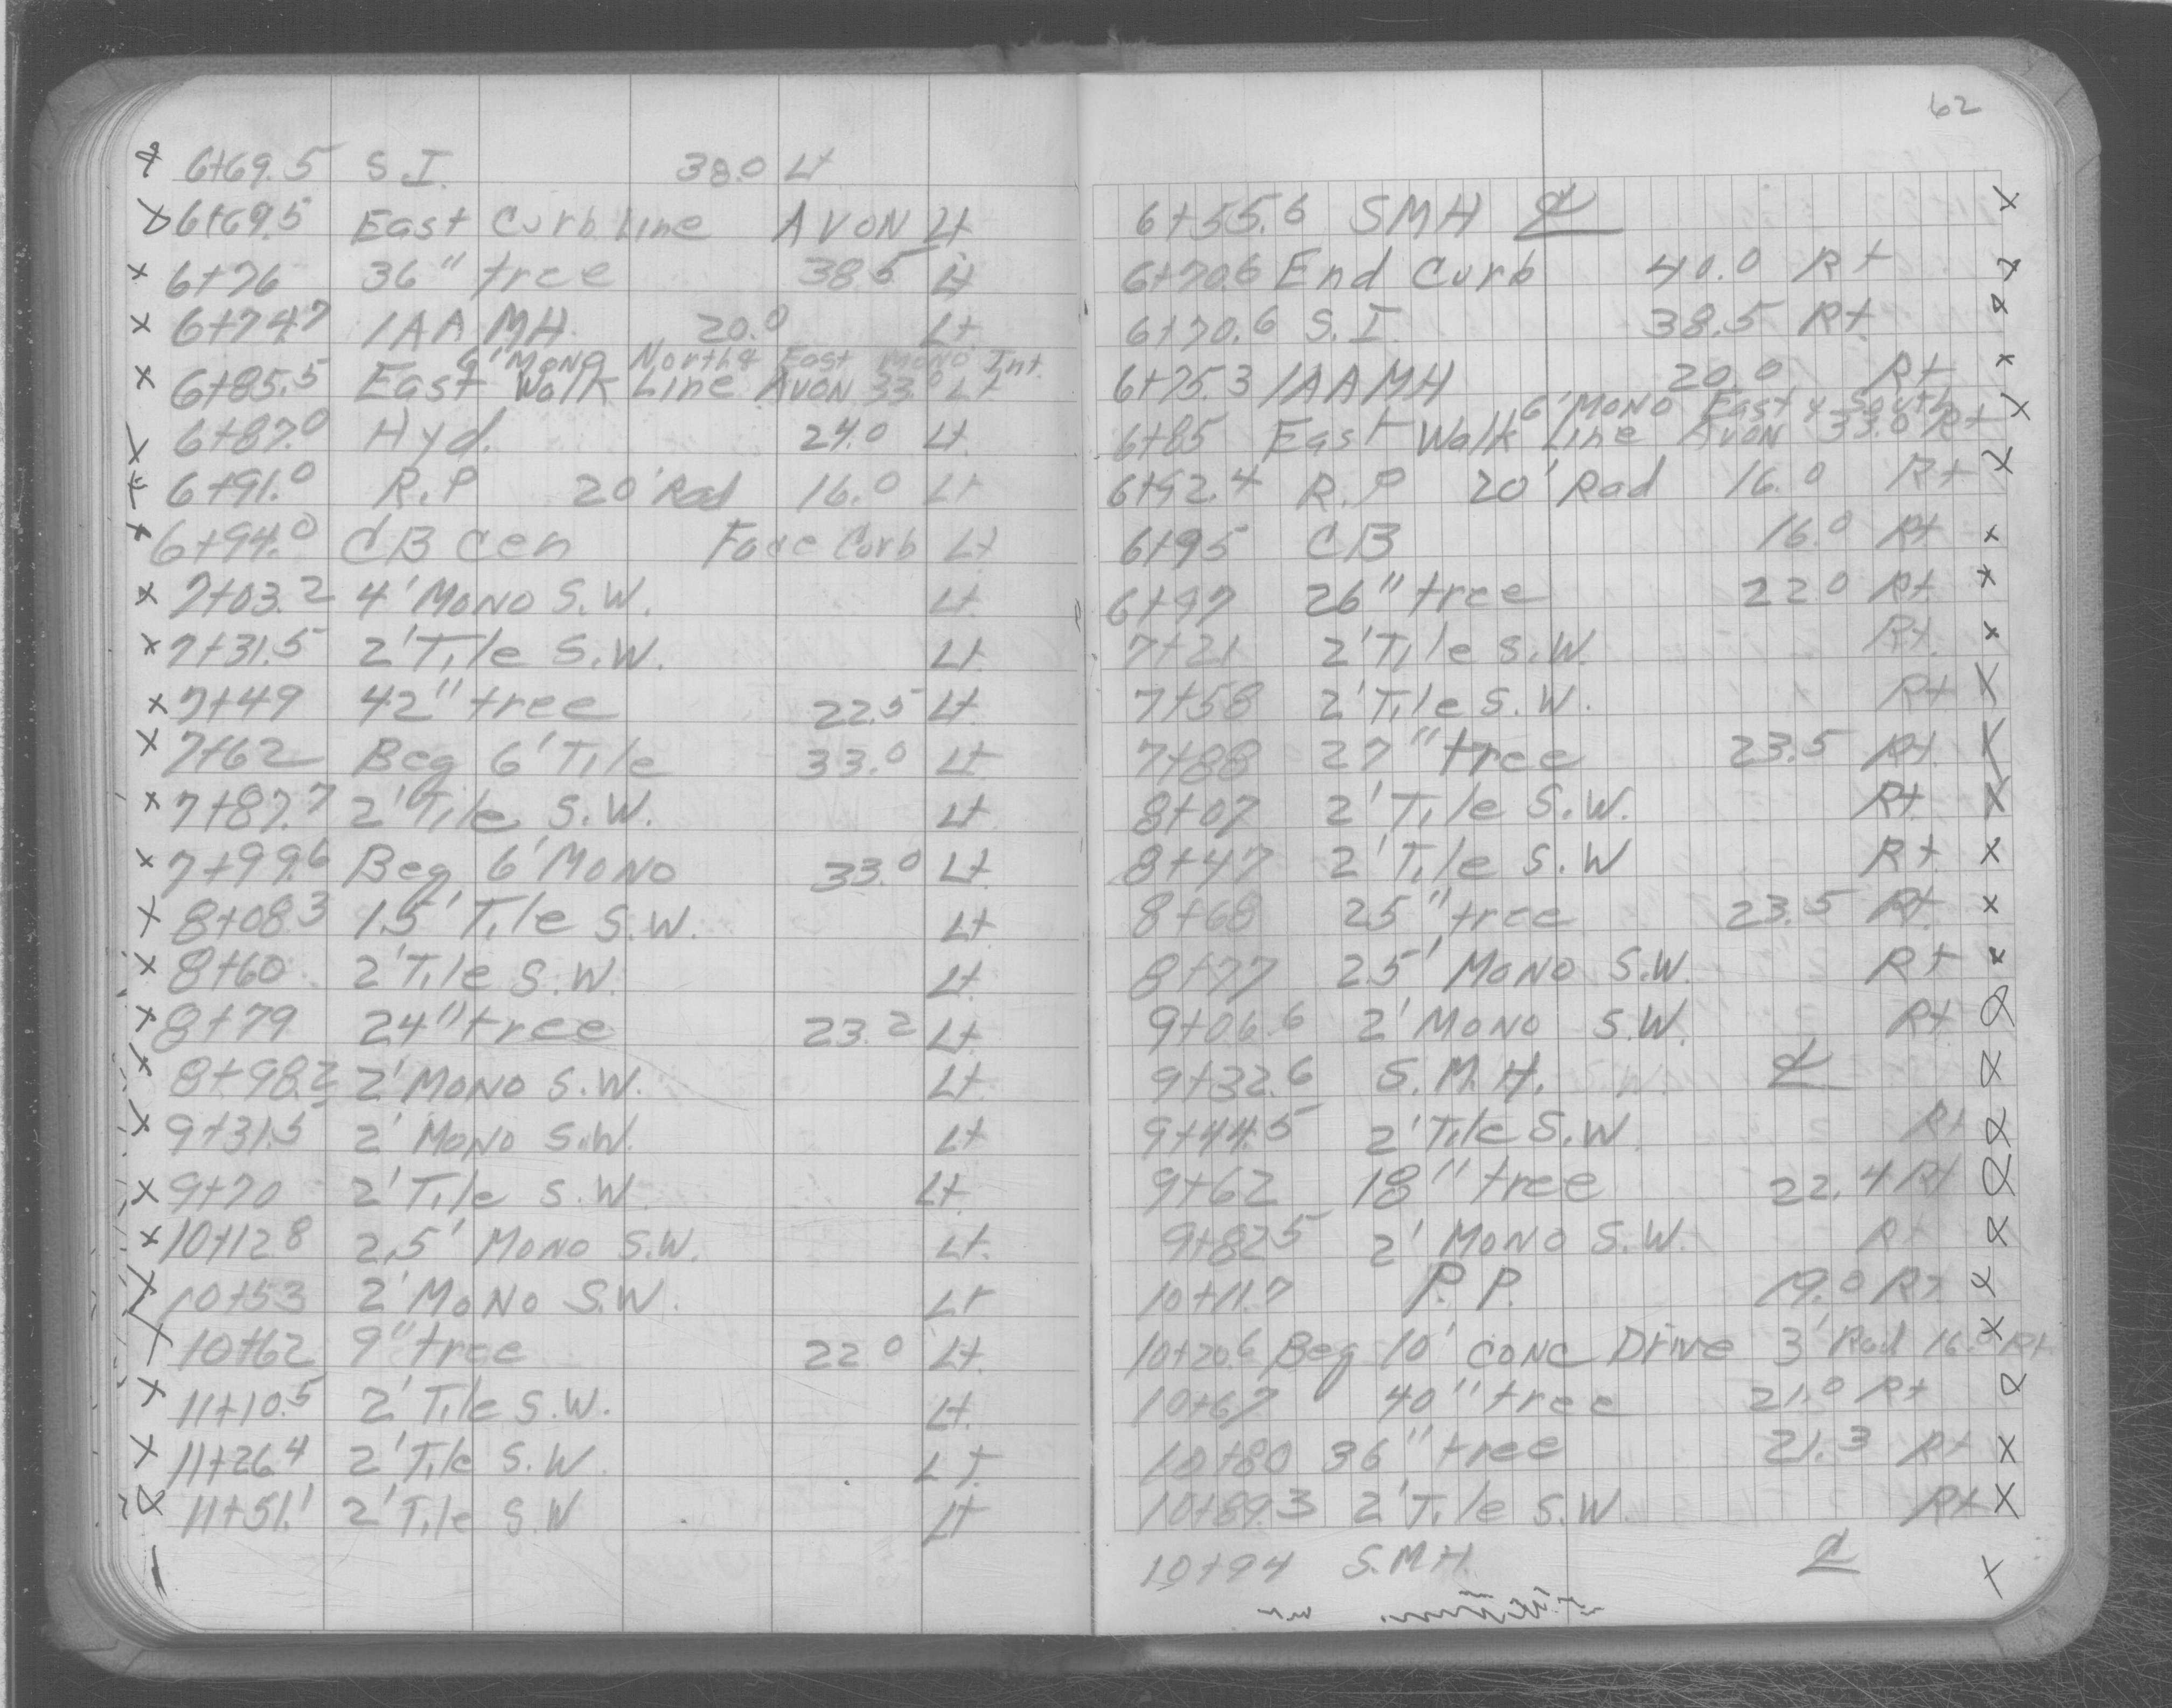 x 6+69.5 S.I. 38.0 Lt
x 6+69.5 East Curb line AVON Lt
x 6+76 36" tree 38.5 Lt
x 6+74.7 1AA MH. 20.0 Lt.
6' Mono North & East Mono Int.
x 6+85.5 East Walk Line AVON 33.0 Lt
x 6+87.0 Hyd. 24.0 Lt.
x 6+91.0 R.P 20' Rad 16.0 Lt
x 6+94.0 CB cen Face Curb Lt
x 7+03.2 4' MONO S.W. Lt.
x 7+31.5 2' Tile S.W. Lt.
x 7+49 42" tree 22.5 Lt.
x 7+62 Beg 6' Tile 33.0 Lt.
x 7+87.7 2' Tile S.W. Lt.
x 7+99.6 Beg 6' MONO 33.0 Lt.
x 8+08.3 1.5' Tile S.W. Lt.
x 8+60 2' Tile S.W. Lt.
x 8+79 24" tree 23.2 Lt.
x 8+98.2 2' MONO S.W. Lt.
x 9+31.5 2' MONO S.W. Lt
x 9+70 2' Tile S.W. Lt.
x 10+12.8 2.5' MONO S.W. Lt.
x 10+53 2' MONO S.W. Lt
x 10+62 9" tree 22.0 Lt.
x 11+10.5 2' Tile S.W. Lt.
x 11+26.4 2' Tile S.W. LT.
x 11+51.1 2' Tile S.W Lt
62
6+55.6 SMH ℄ x
6+70.6 End Curb 40.0 Rt x
6+70.6 S.I. 38.5 Rt. x
6+75.3 1AAMH 20.0 Rt x
6' MONO East & South
6+85 East Walk Line AVON 33.0 Rt x
6+92.4 R.P 20' Rad 16.0 Rt x
6+95 CB 16.0 Rt x
6+97 26" tree 22.0 Rt. x
7+21 2' Tile S.W. Rt. x
7+58 2' Tile S.W. Rt x
7+88 27" tree 23.5 Rt. x
8+07 2' Tile S.W. Rt. x
8+47 2' Tile S.W Rt x
8+68 25" tree 23.5 Rt. x
8+77 2.5' MONO S.W. Rt x
9+06.6 2' MONO S.W. Rt x
9+32.6 S.M.H. ℄ x
9+44.5 2' Tile S.W. Rt x
9+62 18" tree 22.4 Rt x
9+82.5 2' MONO S.W. Rt x
10+11.7 P.P. 19.0 Rt x
10+20.6 Beg 10' CONC Drive 3' Rad 16.0 Rt. x
10+67 40" tree 21.0 Rt x
10+80 36" tree 21.3 Rt x
10+89.3 2' Tile S.W. Rt x
10+94 S.M.H. ℄ x